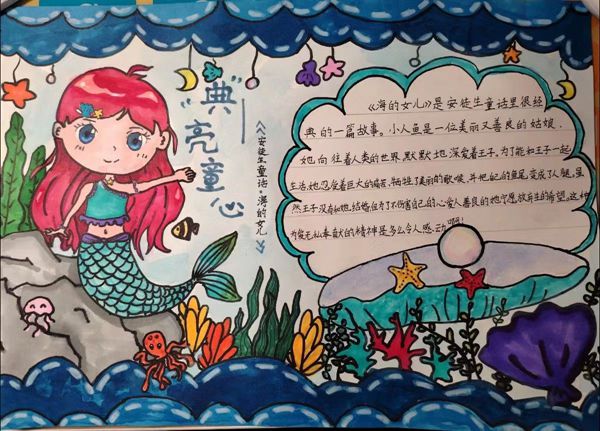 "典"
亮童心
《安徒生童话·海的女儿》
《海的女儿》是安徒生童话里很经
典的一篇故事。小人鱼是一位美丽又善良的姑娘.
她向往着人类的世界,默默地深爱着王子。为了能和王子一起
生活,她忍受着巨大的痛苦、牺牲了美丽的歌喉、并把自己的鱼尾变成了人腿。虽
然王子没有和她结婚但为了不伤害自己的心爱人善良的她宁愿放弃生的希望。这种
为爱无私奉献的精神是多么令人感动啊!